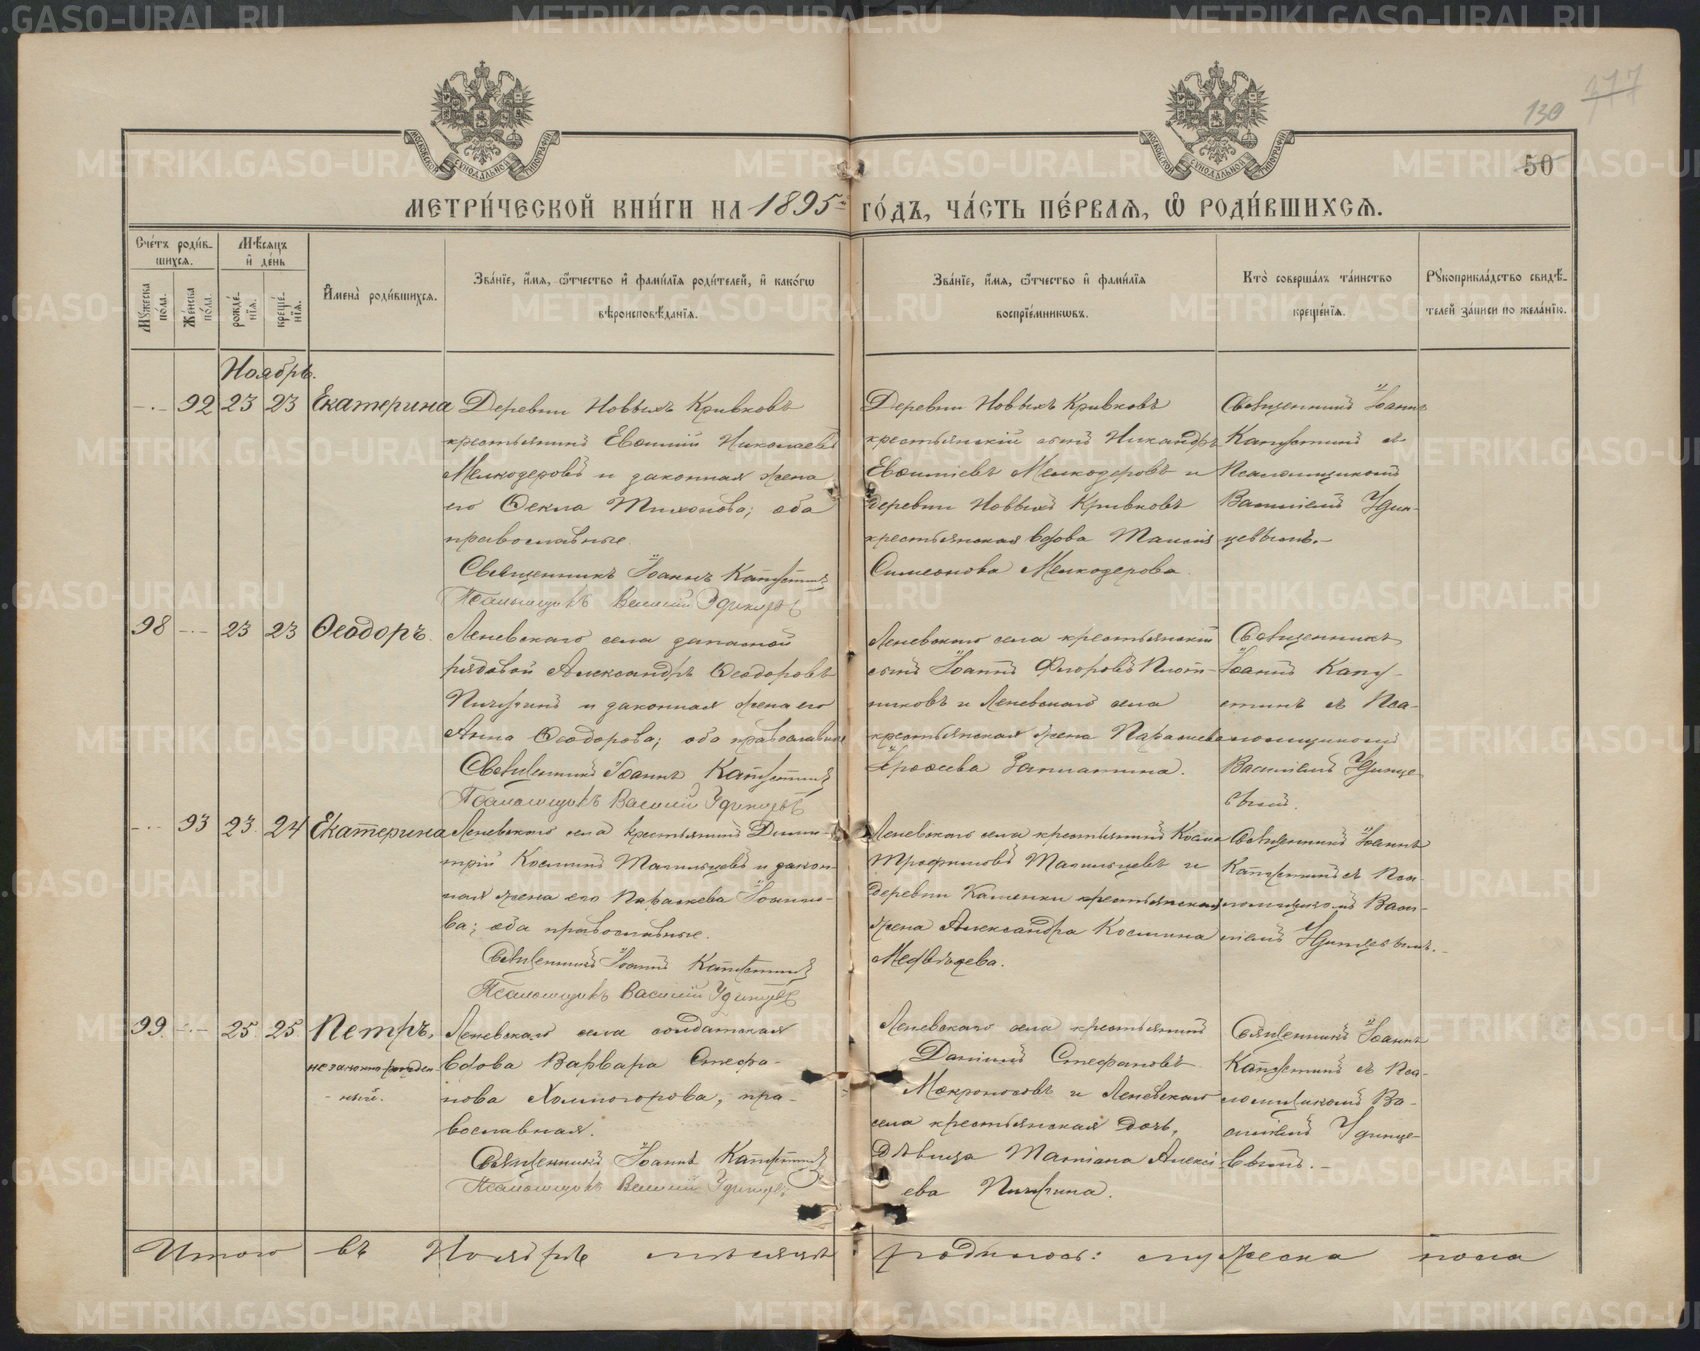 130
177
50
МЕТРИ́ЧЕСКОЙ КНИ́ГИ НА 1895 ГО́ДЪ, ЧА́СТЬ ПЕ́РВАЯ, Ѡ РОДИ́ВШИХСЯ.
Сче́тъ роди́в-
шихся.
Мѣ́сяцъ
и҆ де́нь
Му́жеска по́ла.
Же́нска по́ла.
рожде́нїя.
креще́нїя.
И҆мена̀ роди́вшихся.
Зва́нїе, и҆́мя, ѻ҆́тчество и҆ фами́лїя роди́телей, и҆ како́гѡ
вѣроисповѣ́данїя.
Зва́нїе, и҆́мя, ѻ҆́тчество и҆ фами́лїя
воспрїе́мникѡвъ.
Кто̀ соверша́лъ та́инство
креще́нїя.
Рꙋкоприкла́дство свидѣ́-
телей за́писи по жела́нїю.
Ноябрь.
92 23 23 Екатерина
Деревни Новыхъ Кривковъ
крестьянинъ Евѳимій Николаевъ
Мелкозеровъ и законная жена
его Ѳекла Тихонова; оба
православные.
Священникъ Іоаннъ Капустинъ
Псаломщикъ Василий Удинцев
Деревни Новыхъ Кривковъ
крестьянскій сынъ Никандръ
Евѳиміевъ Мелкозеровъ и
деревни Новыхъ Кривковъ
крестьянская вдова Таисія
Симеонова Мелкозерова
Священникъ Іоаннъ
Капустинъ съ
Псаломщикомъ
Василіемъ Удин-
цевымъ.
98 23 23 Ѳеодоръ.
Леневскаго села запасной
рядовой Александръ Ѳеодоровъ
Пичугинъ и законная жена его
Анна Ѳеодорова; оба православные
Священникъ Іоаннъ Капустинъ
Псаломщикъ Василий Удинцев
Леневскаго села крестьянскій
сынъ Іоаннъ Флоровъ Плот-
никовъ и Леневскаго села
крестьянская жена Параскева
Запатина.
Священникъ
Іоаннъ Капу-
стинъ съ Пса-
ломщикомъ
Василіемъ Удинце-
вымъ.
93 23 24 Екатерина
Леневскаго села крестьянинъ Дими-
трій Косминъ Тагильцевъ и закон-
ная жена его Параскева Іоанно-
ва; оба православные.
Священникъ Іоаннъ Капустинъ
Псаломщикъ Василий Удинцев
Леневскаго села крестьянинъ Косма
Трофимовъ Тагильцевъ и
деревни Каменки крестьянская
жена Александра Космина
Медвѣдева.
Священникъ Іоаннъ
Капустинъ съ Пса-
ломщикомъ Васи-
ліемъ Удинцевымъ.
99. 25 25 Петръ,
незаконнорожден-
ный.
Леневскаго села солдатская
вдова Варвара Стефа-
нова Холмогорова, пра-
вославная.
Священникъ Іоаннъ Капустинъ
Псаломщикъ Василий Удинцев
Леневскаго села крестьянинъ
Даніилъ Стефановъ
Мокроносовъ и Леневскаго
села крестьянская дочь,
дѣвица Татіана Алексі-
ева Пичугина.
Священникъ Іоаннъ
Капустинъ съ Пса-
ломщикомъ Ва-
силіемъ Удинце-
вымъ.
Итого въ Ноябрѣ мѣсяцѣ родилось: мужеска пола
METRIKI.GASO-URAL.RU